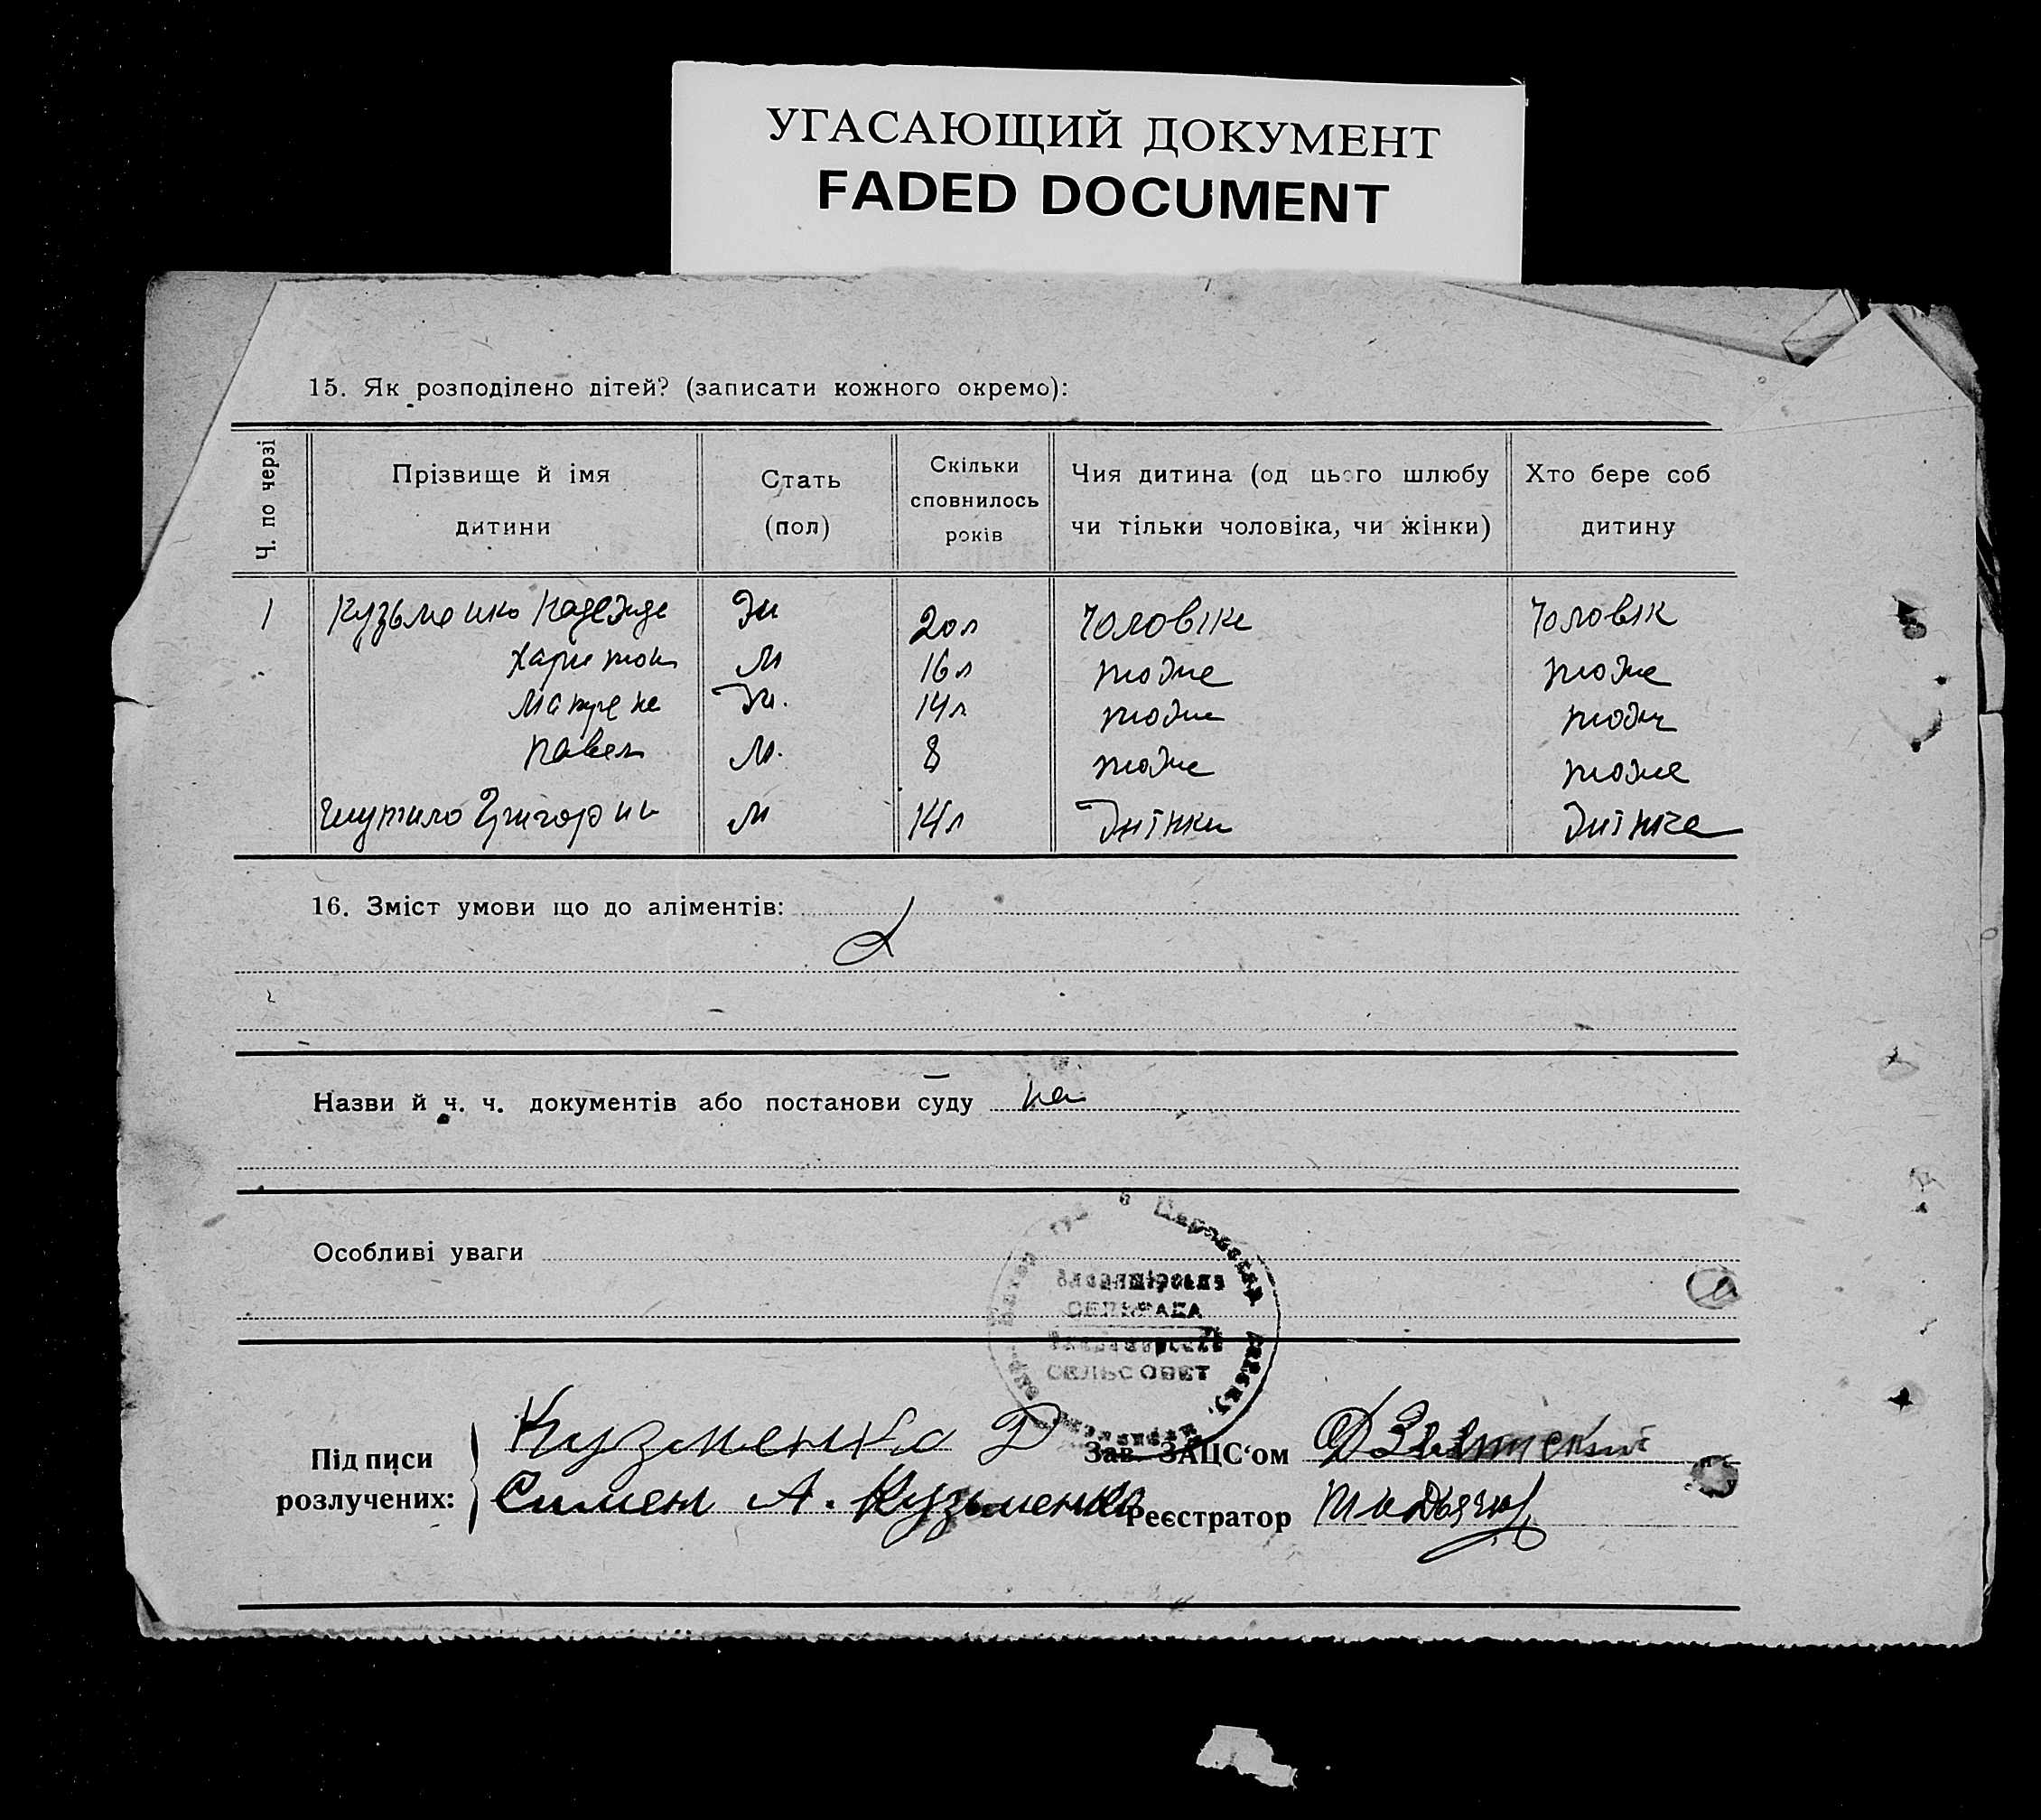 УГАСАЮЩИЙ ДОКУМЕНТ
FADED DOCUMENT
15. Як розподілено дітей? (записати кожного окремо):
Ч. по черзі
Прізвище й імя дитини
Стать (пол)
Скільки сповнилось років
Чия дитина (од цього шлюбу чи тільки чоловіка, чи жінки)
Хто бере соб дитину
1 Кузьменко Надежда Ж 20 л Чоловіка Чоловік
Харитон М 16 л тоже тоже
Ж. 14 л тоже тоже
Павел М. 8 тоже тоже
Григорий М 14 л Жінки Жінка
16. Зміст умови що до аліментів:
Назви й ч. ч. документів або постанови суду
Особливі уваги
СЕЛЬРАДА
СЕЛЬСОВЕТ
Підписи розлучених:
Кузменко
Симен А. Кузьменко
Зав. ЗАЦС‘ом
Реєстратор